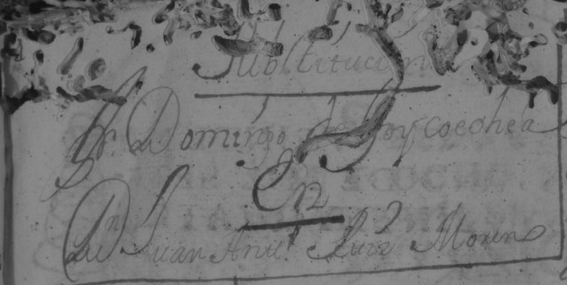 Substitucion
Dr Domingo de Goycoechea
En
Dn Juan Antt.º Ruiz Moreno